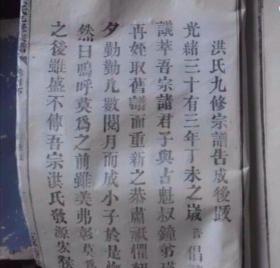 洪氏九修宗譜告成後跋
光緒三十有三年丁未之歲吾倡
議萃吾宗諸君子與占魁叔鐘
再姪取舊譜而重新之恭肅祗懼
夕勤勤凡數閱月而成小子於是
然曰嗚呼莫為之前雖美弗彰莫
之後雖盛不傳吾宗洪氏敬源宏